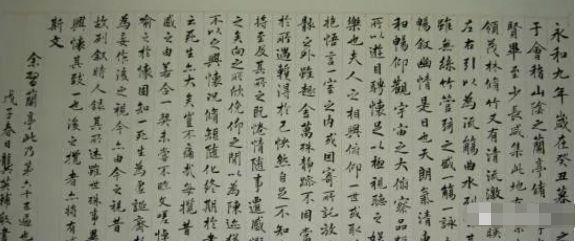 永和九年歲在癸丑暮春
于會稽山陰之蘭亭脩
賢畢至少長咸集此地有
領茂林脩竹又有清流激
左右引以為流觴曲水列坐
雖無絲竹管弦之盛一觴一詠
暢叙幽情是日也天朗氣清惠
和暢仰觀宇宙之大俯察品類
所以遊目騁懷足以極視聽之娛
樂也夫人之相與俯仰一世或取
抱悟言一室之內或因寄所託放
骸之外雖趣舍萬殊靜躁不同當
於所遇暫得於己怏然自足不知
將至及其所之既惓情隨事遷感慨
之矣向之所欣俛仰之間以為陳迹
不以之興懷況脩短隨化終期於盡
云死生亦大矣豈不痛哉每攬昔
感之由若合一契未嘗不臨文嗟悼
喻之於懷固知一死生為虛誕齊彭
為妄作後之視今亦由今之視昔
故列叙時人錄其所述雖世殊事異
興懷其致一也後之攬者亦將有
斯文
余習蘭亭此乃第六十五通也
戊子春日龔